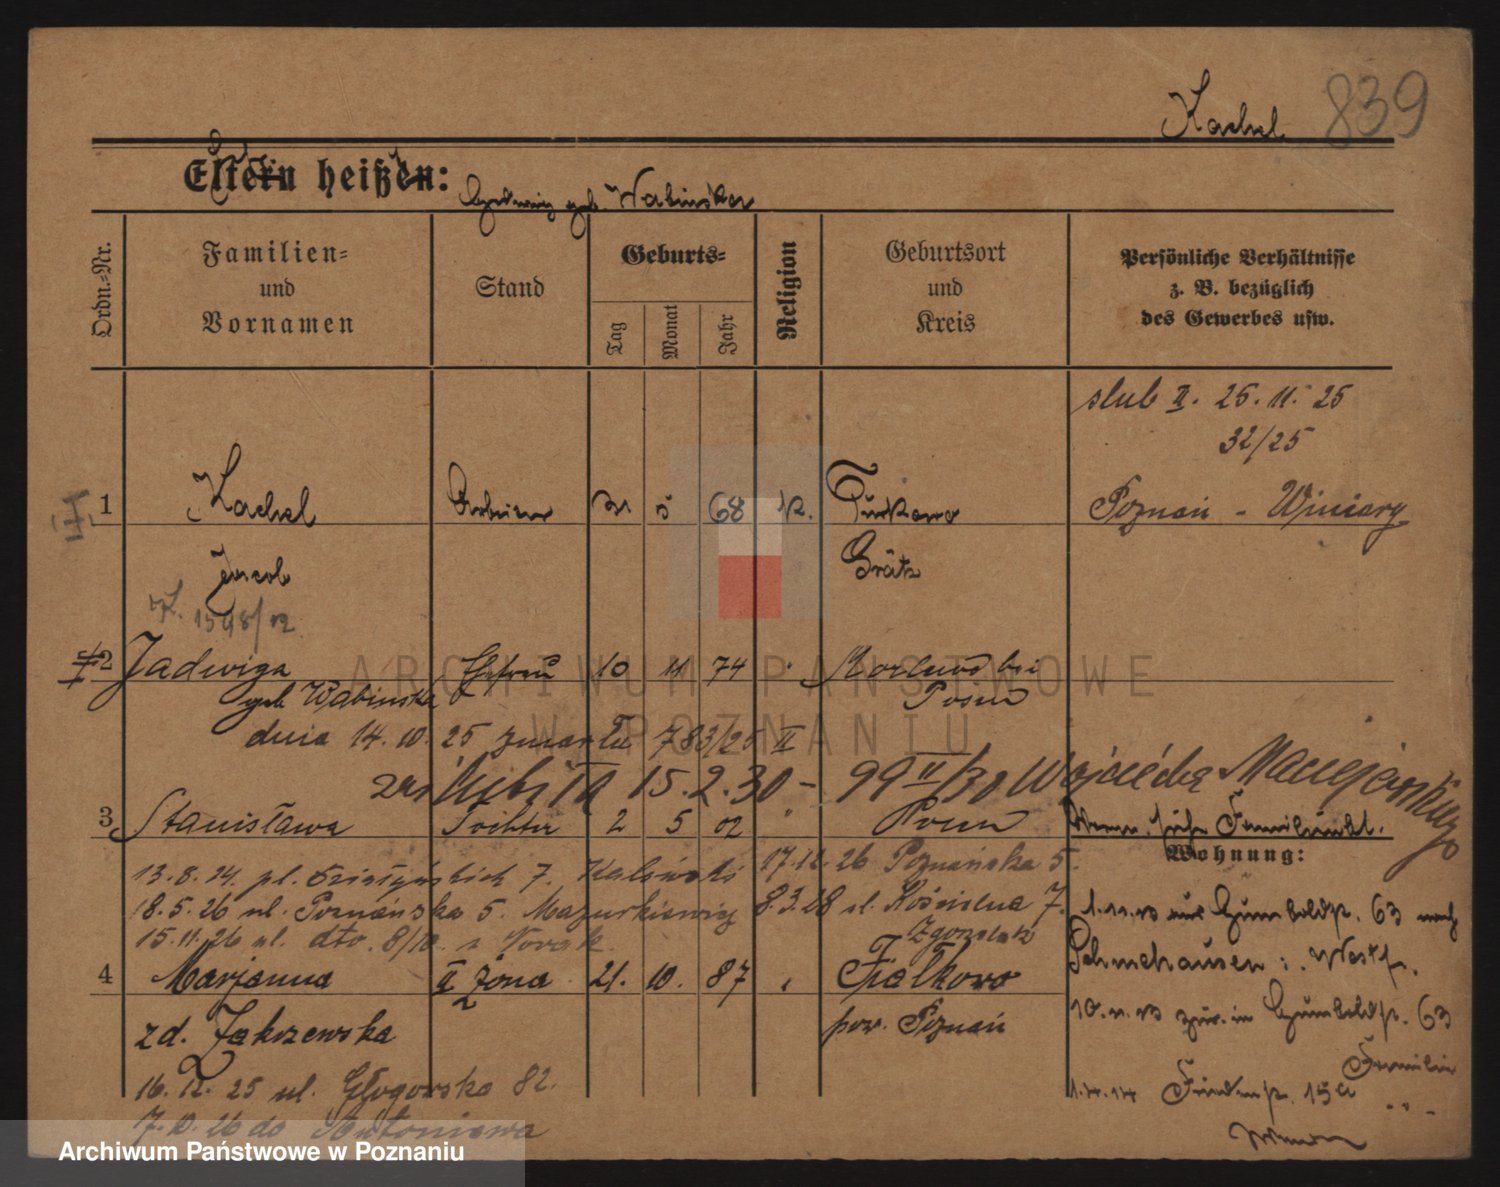 Kachel 839
Eltern heißen:
Hedwig geb. Wabinska
Ordn.-Nr.
Familien-
und
Vornamen
Stand
Geburts-
Tag
Monat
Jahr
Religion
Geburtsort
und
Kreis
Persönliche Verhältnisse
z. B. bezüglich
des Gewerbes usw.
slub II. 25. 11. 25
32/25
1 Kachel Arbeiter 5 68 k. Turkowo Poznań - Winiary
Jacob Grätz
K. 1598/02
2 Jadwiga Ehefrau 10 11 74 bei
geb Wabinska Posen
dnia 14. 10. 25 zmarła 783/25 II
zaś ślubiła 15. 2. 30 - 99 II/30 Wojciecha Maciejewskiego
3 Stanisława Tochter 2 5 02 " Posen
Wohnung:
13. 8. 24. pl. 7.
17.12.26 Poznańska 5.
18. 5. 26 ul. Poznańska 5. Mazurkiewicz 8.3.28 ul. Kościelna 7.
15. 11. 26 ul. dto. 8/10. Nowak
1.11.13 aus Humboldtstr. 63 nach
i. Westf.
4 Marjanna II żona 21. 10. 87 Fiałkowo
10.11.13 zur. in Humboldtstr. 63
zd. Jakszewska pow. Poznań
Familie
16. 12. 25 ul. Głogowska 82.
1.4.14 15a
7. 10. 26 do Antoniewa
ARCHIWUM PAŃSTWOWE
W POZNANIU
Archiwum Państwowe w Poznaniu